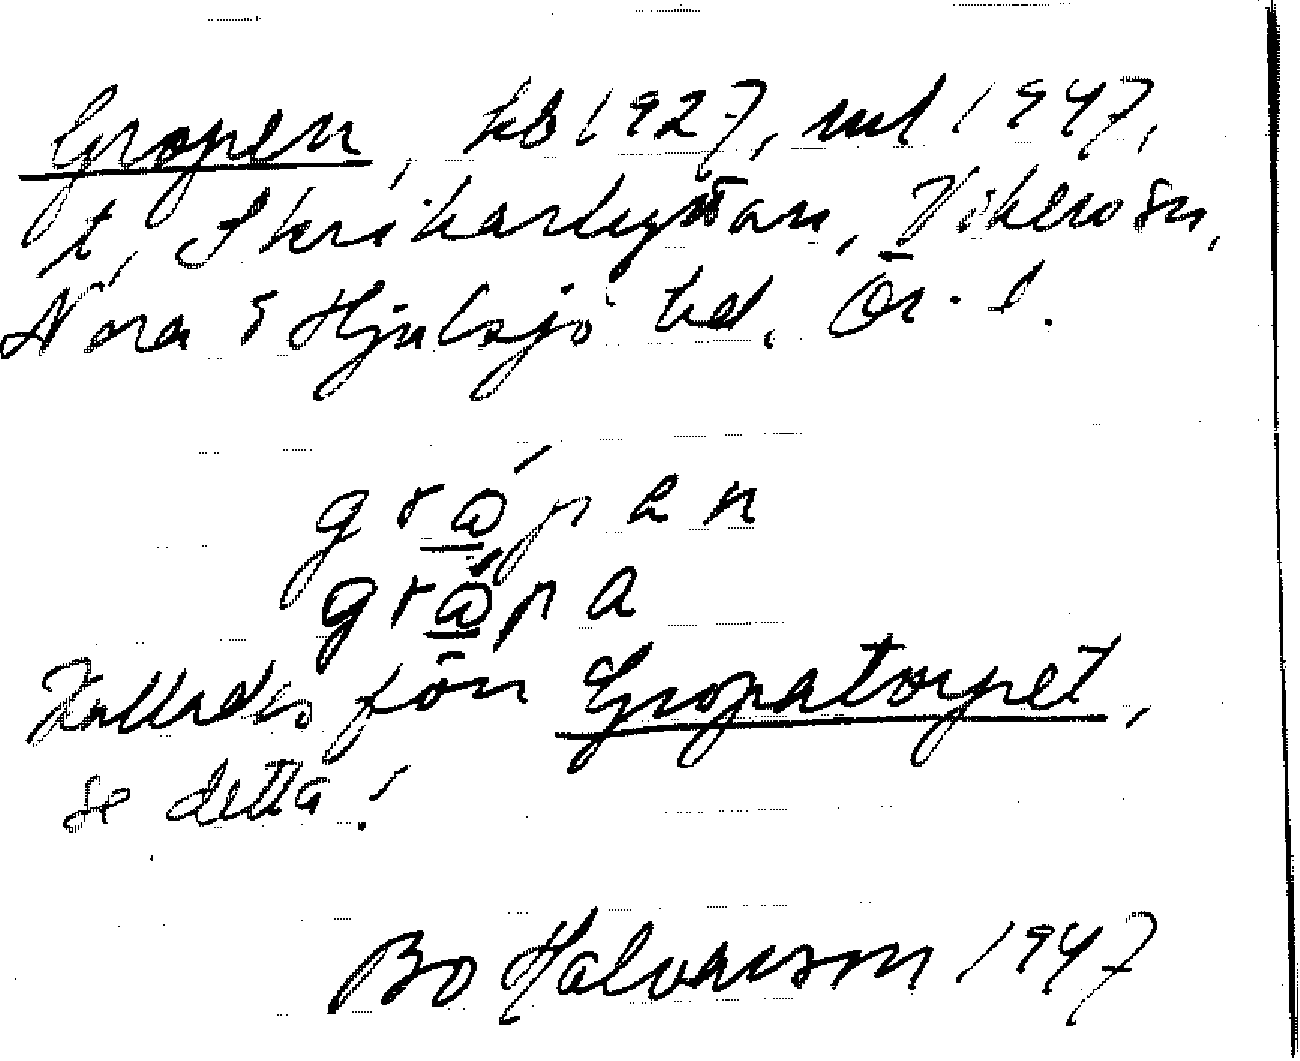 Gropen, kb 1927, uul 1947,
t. Skrikarhyttan, Vikers sn,
Nora o Hjulsjö hd. Ör. l.
grå̲´pen
grå̲´pa
Kallades förr Gropatorpet,
se detta!
Bo Halvarson 1947